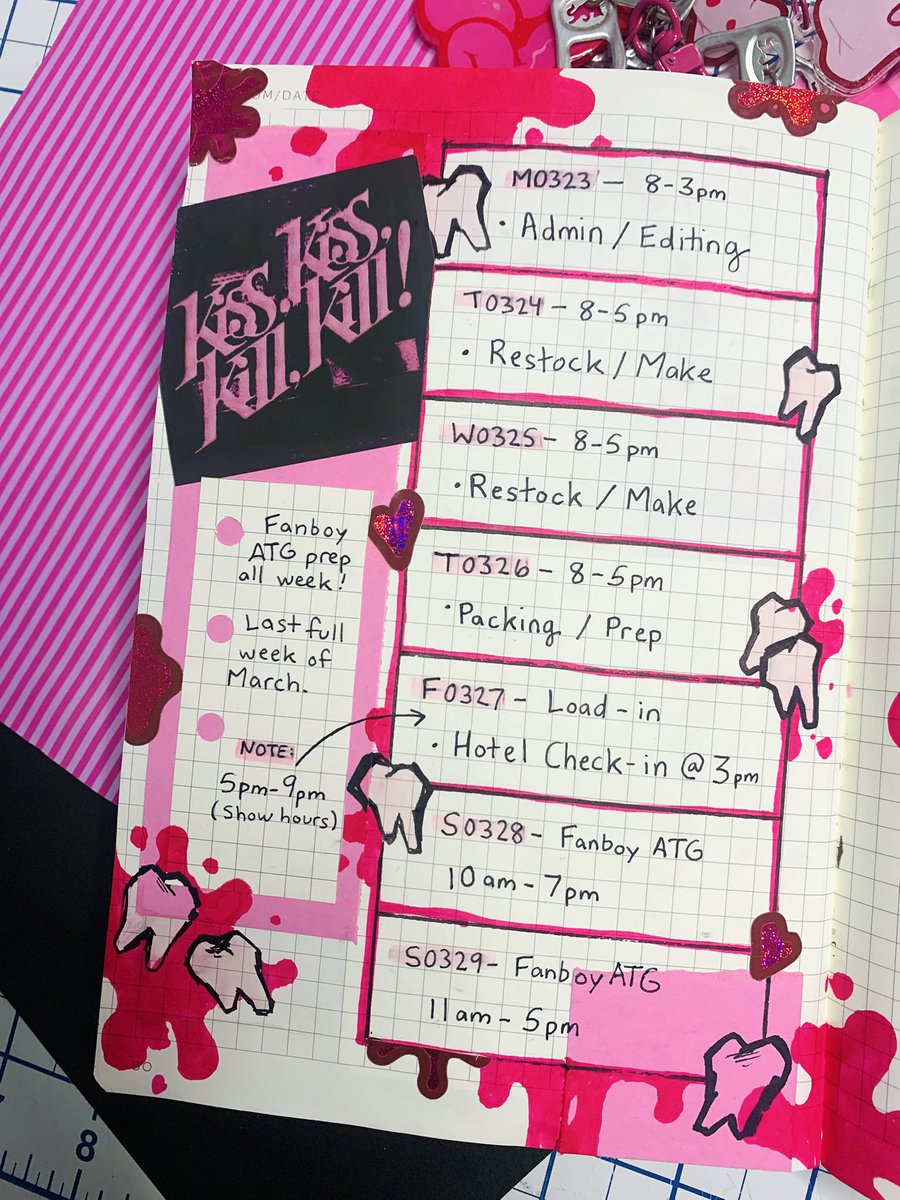 Kiss, Kiss,
Kill, Kill!
Fanboy
ATG prep
all week!
Last full
week of
March.
NOTE:
5pm-9pm
(Show hours)
M0323 - 8-3pm
• Admin / Editing
T0324 - 8-5pm
• Restock / Make
W0325 - 8-5pm
• Restock / Make
T0326 - 8-5pm
• Packing / Prep
F0327 - Load-in
• Hotel Check-in @ 3pm
S0328 - Fanboy ATG
10am - 7pm
S0329 - Fanboy ATG
11am - 5pm
8